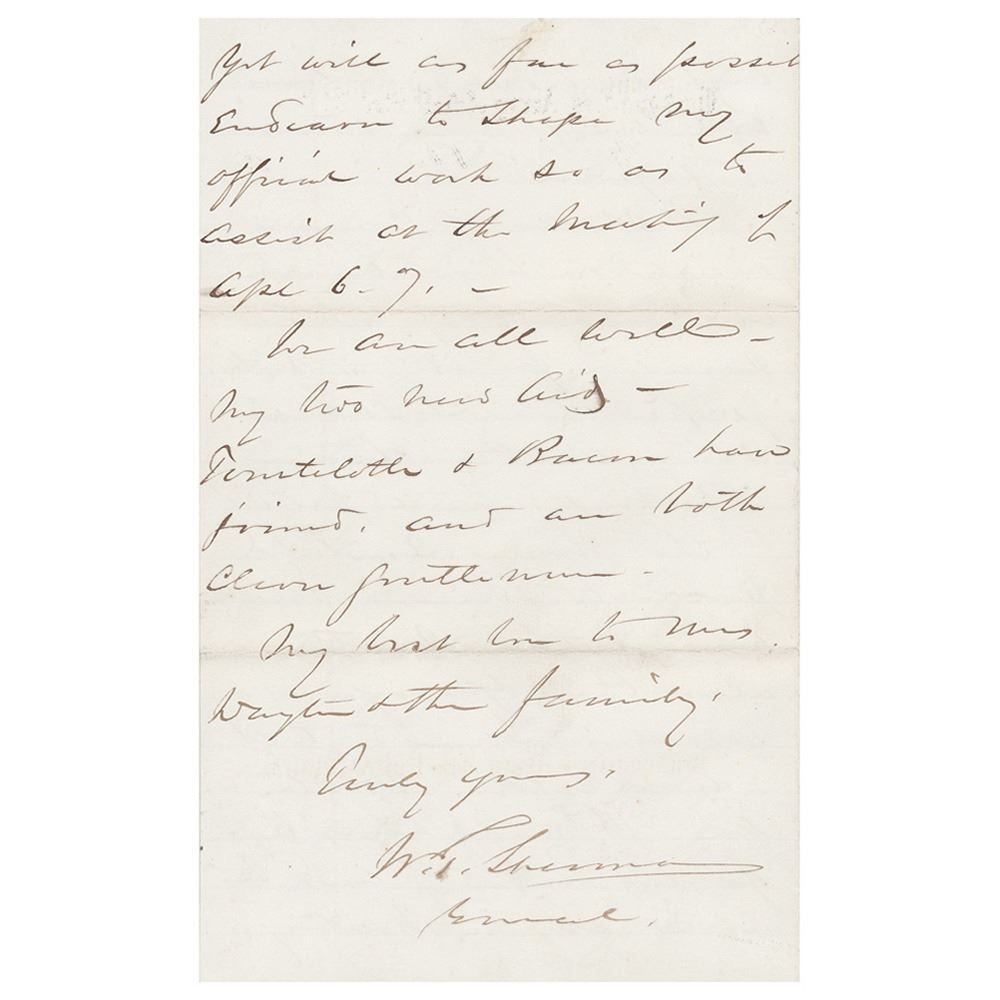 Yet will as far as possib
Endeavor to shape my
official work so as to
assist at the Meeting of
Apl 6-7. -
We are all well -
My two new Aids -
Tourtelotte & Bacon have
joined, and are both
Clever gentlemen -
My best love to Mrs.
Dayton & the family.
Truly yours,
W. T. Sherman
General.